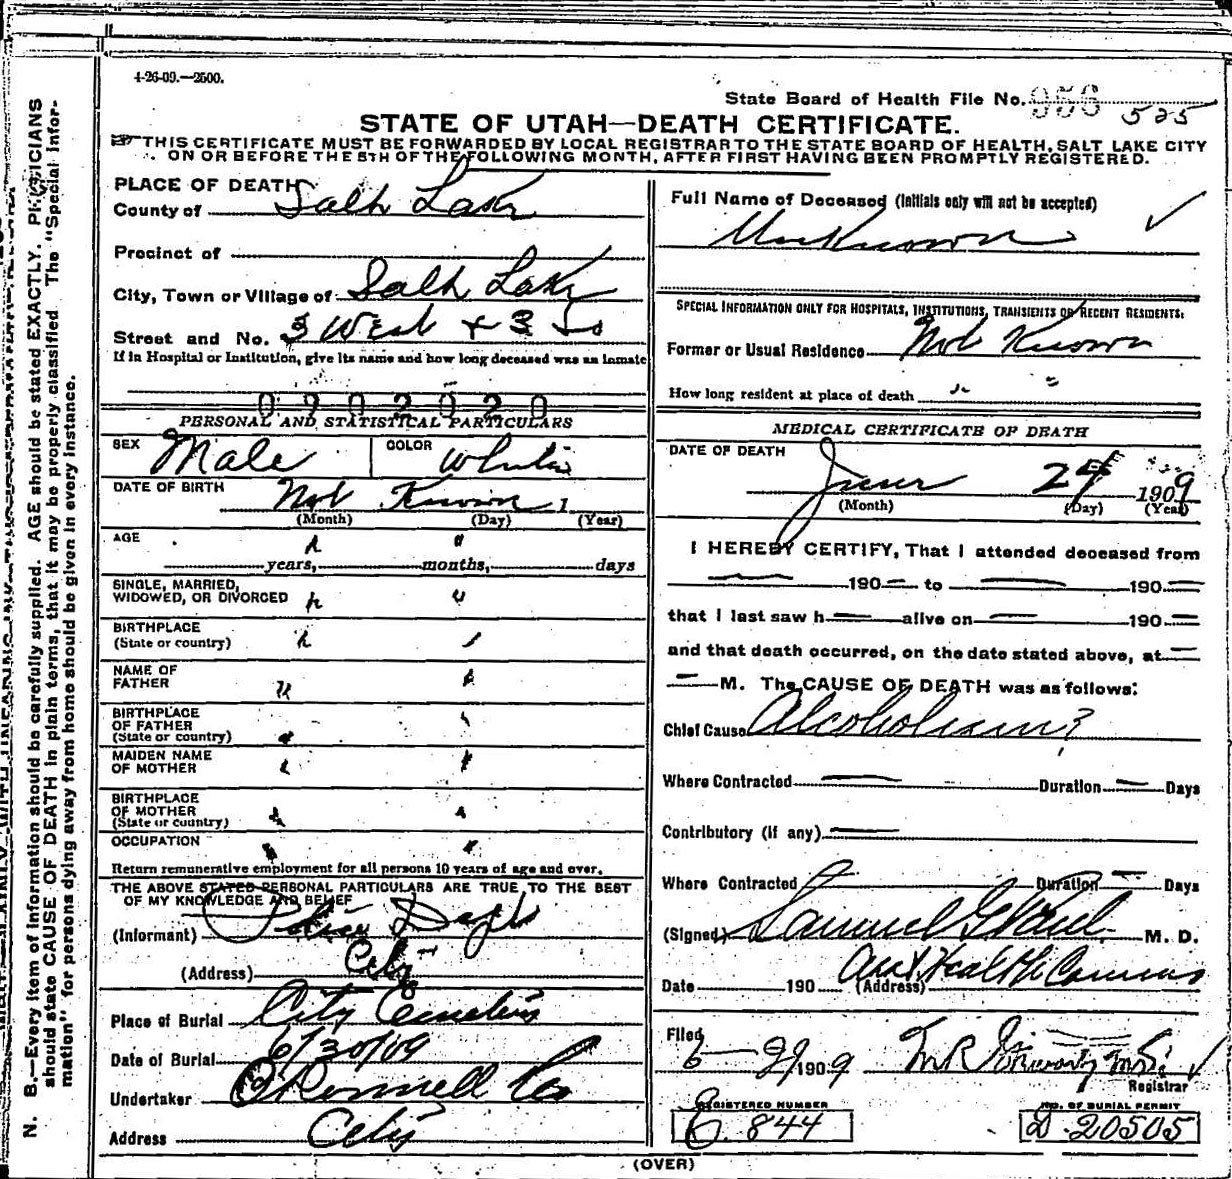 4-26-09.—2500.
State Board of Health File No. 956 525
STATE OF UTAH—DEATH CERTIFICATE.
THIS CERTIFICATE MUST BE FORWARDED BY LOCAL REGISTRAR TO THE STATE BOARD OF HEALTH, SALT LAKE CITY
ON OR BEFORE THE 5TH OF THE FOLLOWING MONTH, AFTER FIRST HAVING BEEN PROMPTLY REGISTERED.
PLACE OF DEATH
County of Salt Lake
Precinct of
City, Town or Village of Salt Lake
Street and No. 3 West + 3 So
If in Hospital or Institution, give its name and how long deceased was an inmate
0902020
PERSONAL AND STATISTICAL PARTICULARS
SEX Male COLOR White
DATE OF BIRTH Not Known 1
(Month) (Day) (Year)
AGE " "
years, months, days
SINGLE, MARRIED,
WIDOWED, OR DIVORCED " "
BIRTHPLACE
(State or country) " "
NAME OF
FATHER " "
BIRTHPLACE
OF FATHER
(State or country) " "
MAIDEN NAME
OF MOTHER " "
BIRTHPLACE
OF MOTHER
(State or country) " "
OCCUPATION " "
Return remunerative employment for all persons 10 years of age and over.
THE ABOVE STATED PERSONAL PARTICULARS ARE TRUE TO THE BEST
OF MY KNOWLEDGE AND BELIEF
(Informant) Police Dept
(Address) City
Place of Burial City Cemetery
Date of Burial 6/30/09
Undertaker O'Donnell Co
Address City
Full Name of Deceased (Initials only will not be accepted)
Unknown
SPECIAL INFORMATION ONLY FOR HOSPITALS, INSTITUTIONS, TRANSIENTS OR RECENT RESIDENTS:
Former or Usual Residence Not Known
How long resident at place of death " "
MEDICAL CERTIFICATE OF DEATH
DATE OF DEATH
June 24 1909
(Month) (Day) (Year)
I HEREBY CERTIFY, That I attended deceased from
— 190 — to — 190 —
that I last saw h — alive on — 190 —
and that death occurred, on the date stated above, at —
— M. The CAUSE OF DEATH was as follows:
Chief Cause Alcoholism?
Where Contracted — Duration — Days
Contributory (if any) —
Where Contracted Duration — Days
(Signed) Samuel G. Paul M. D.
Date 190 (Address) Health Commis
Filed
6- 1909
Registrar
REGISTERED NUMBER
C. 844
NO. OF BURIAL PERMIT
D 20505
(OVER)
N. B.—Every item of information should be carefully supplied. AGE should be stated EXACTLY. PHYSICIANS
should state CAUSE OF DEATH in plain terms, that it may be properly classified. The "Special Infor-
mation" for persons dying away from home should be given in every instance.